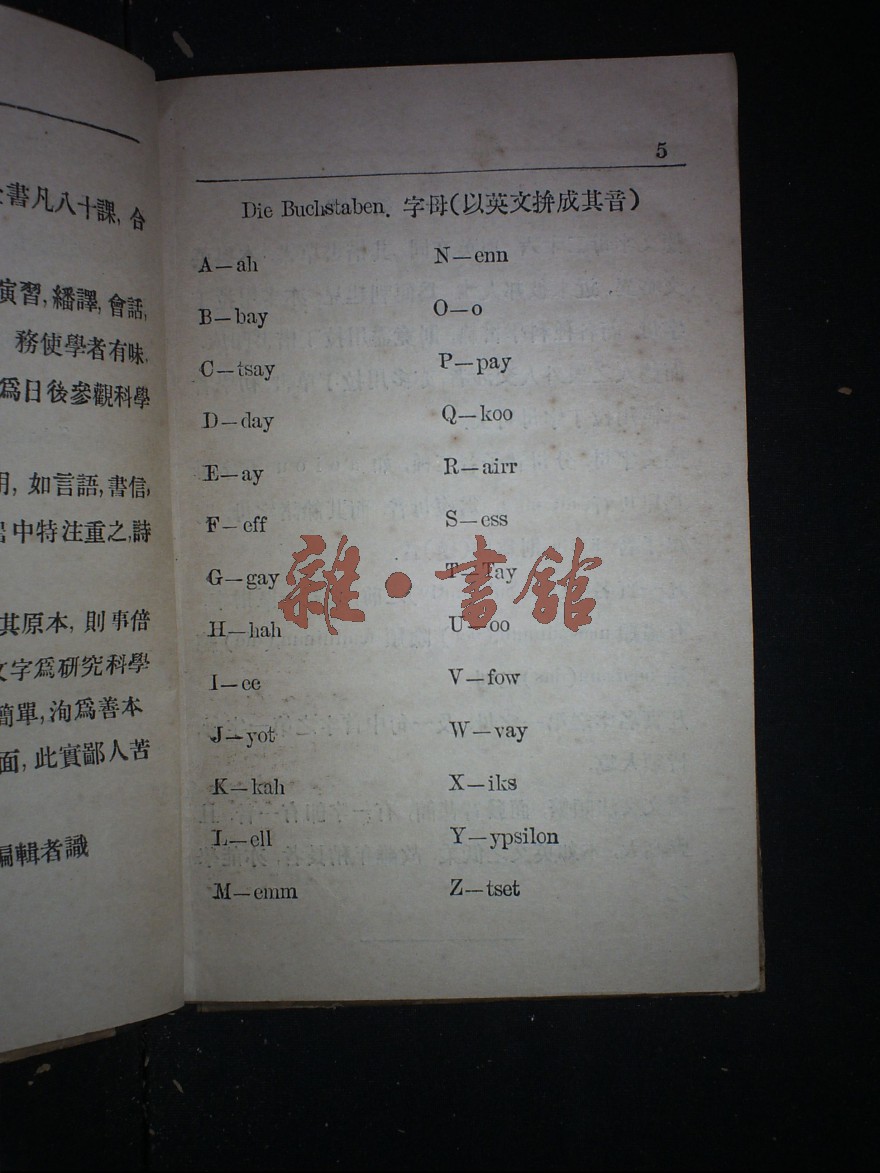 書凡八十課, 合
演習, 繙譯, 會話,
務使學者有味,
爲日後參觀科學
用, 如言語, 書信,
中特注重之, 詩
其原本, 則事倍
文字爲研究科學
簡單, 洵爲善本
面, 此實鄙人苦
編輯者識
5
Die Buchstaben. 字母(以英文拚成其音)
A—ah
B—bay
C—tsay
D—day
E—ay
F—eff
G—gay
H—hah
I—ee
J—yot
K—kah
L—ell
M—emm
N—enn
O—o
P—pay
Q—koo
R—airr
S—ess
T—Tay
U—oo
V—fow
W—vay
X—iks
Y—ypsilon
Z—tset
雜·書館